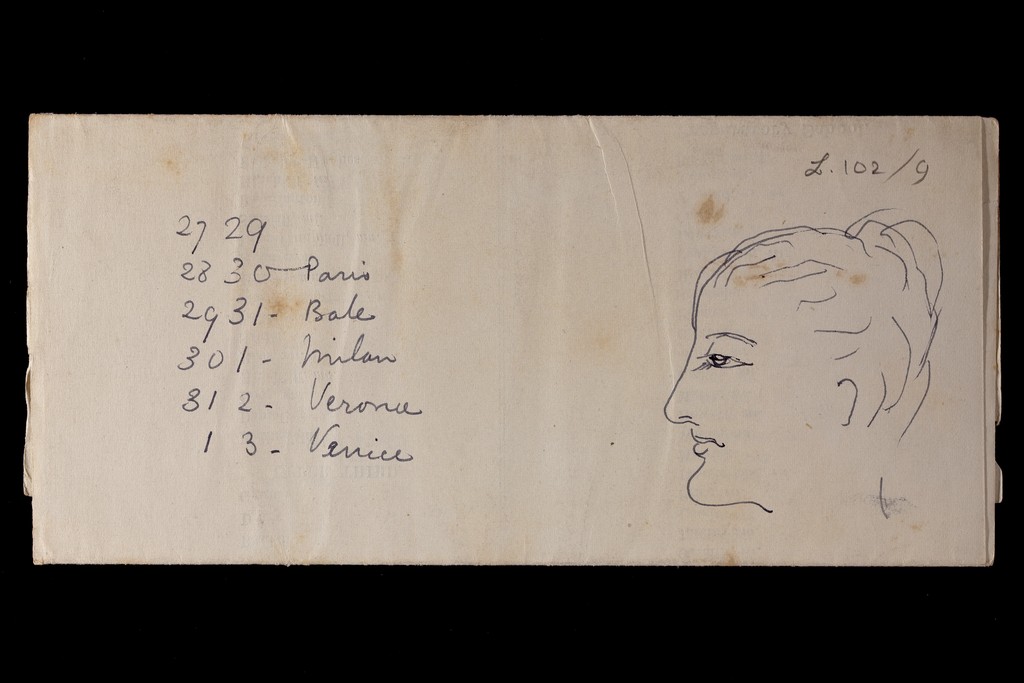 L. 102/9
27 29
28 30 - Paris
29 31 - Bale
30 1 - Milan
31 2 - Verona
1 3 - Venice